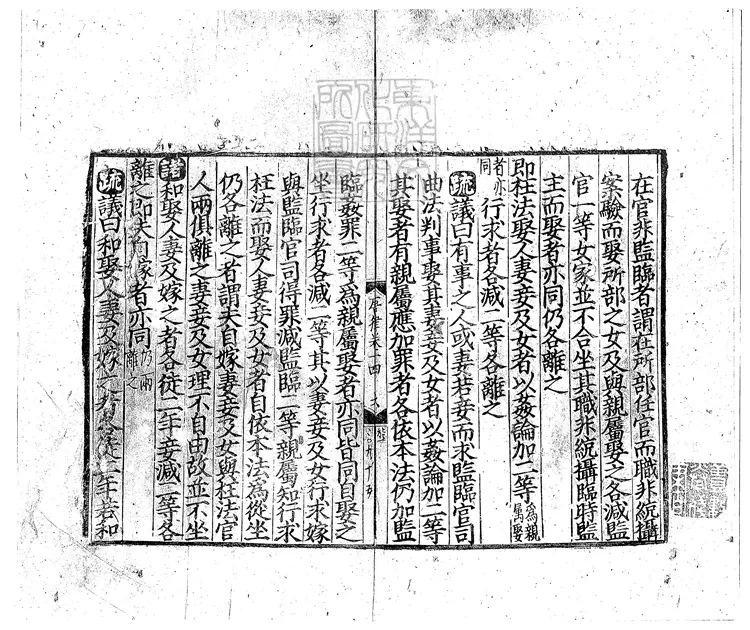 在官非監臨者謂在所部任官而職非統攝
案驗而娶所部之女及與親屬娶之各減監
官一等女家並不合坐其職非統攝臨時監
主而娶者亦同仍各離之
即枉法娶人妻妾及女者以姦論加二等為親屬娶
者亦同行求者各減二等各離之
疏議曰有事之人或妻若妾而求監臨官司
曲法判事娶其妻妾及女者以姦論加二等
其娶者有親屬應加罪者各依本法仍加監
臨姦罪二等為親屬娶者亦同皆同自娶之
坐行求者各減二等其以妻妾及女行求嫁
與監臨官司得罪減監臨二等親屬知行求
枉法而娶人妻妾及女者自依本法為從坐
仍各離之者謂夫自嫁妻妾及女與枉法官
人兩俱離之妻妾及女理不自由故並不坐
諸和娶人妻及嫁之者各徒二年妾減二等各
離之即夫自嫁者亦同仍兩離之
疏議曰和娶人妻及嫁之者各徒二年若和